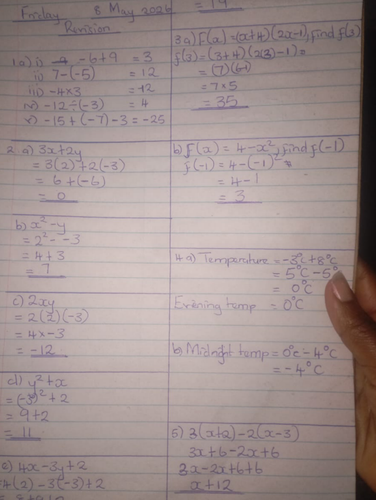 Friday 8 May 2026
Revision
1a) i) -6+9 = 3
ii) 7-(-5) = 12
iii) -4×3 = -12
iv) -12÷(-3) = 4
v) -15+(-7)-3 = -25
2. a) 3x+2y
= 3(2)+2(-3)
= 6+(-6)
= 0
b) x²-y
= 2²--3
= 4+3
= 7
c) 2xy
= 2(2)(-3)
= 4×-3
= -12
d) y²+x
= (-3)²+2
= 9+2
= 11
e) 4x-3y+2
4(2)-3(-3)+2
= 19
3a) f(x)=(x+4)(2x-1), find f(3)
f(3)=(3+4)(2(3)-1)=
= (7)(6-1)
= 7×5
= 35
b) f(x) = 4-x², find f(-1)
f(-1) = 4-(-1)²
= 4-1
= 3
4a) Temperature = -3°C+8°C
= 5°C-5°
= 0°C
Evening temp = 0°C
b) Midnight temp = 0°C-4°C
= -4°C
5) 3(x+2)-2(x-3)
3x+6-2x+6
3x-2x+6+6
x+12